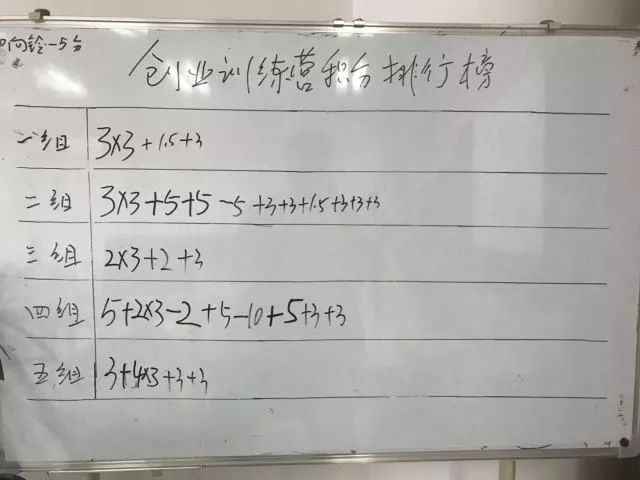 响铃-5分
创业训练营积分排行榜
一组 3×3+1.5+3
二组 3×3+5+5-5+3+3+1.5+3+3+3
三组 2×3+2+3
四组 5+2×3-2+5-10+5+3+3
五组 3+4×3+3+3